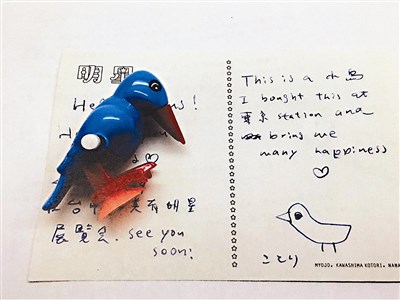 明星
台中 有明星
展覧会. see you
soon!
This is a 小鳥
I bought this at
station and
bring me
many happiness
♡
ことり
MYOJO. KAWASHIMA KOTORI. NANA